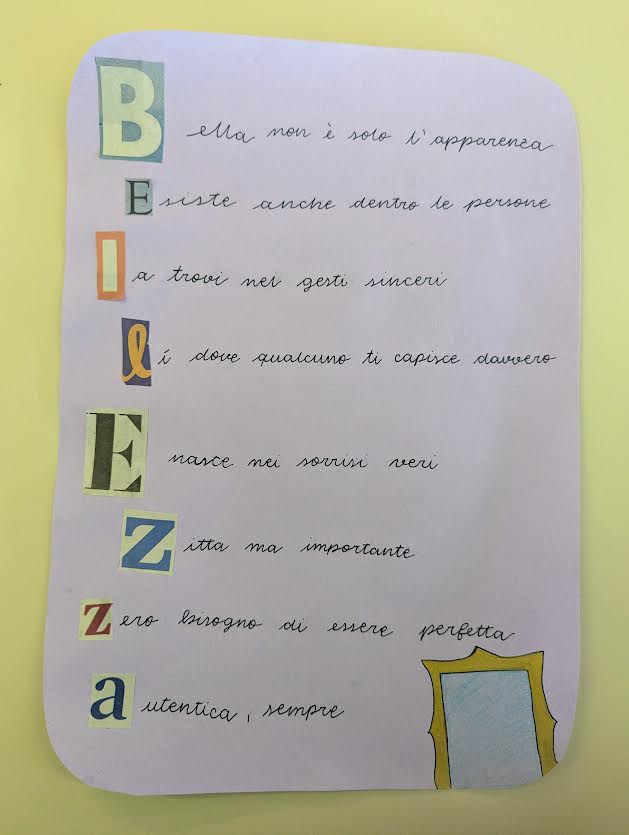 Bella non è solo l'apparenza
Esiste anche dentro le persone
la trovi nei gesti sinceri
lí dove qualcuno ti capisce davvero
E nasce nei sorrisi veri
Zitta ma importante
zero bisogno di essere perfetta
autentica, sempre